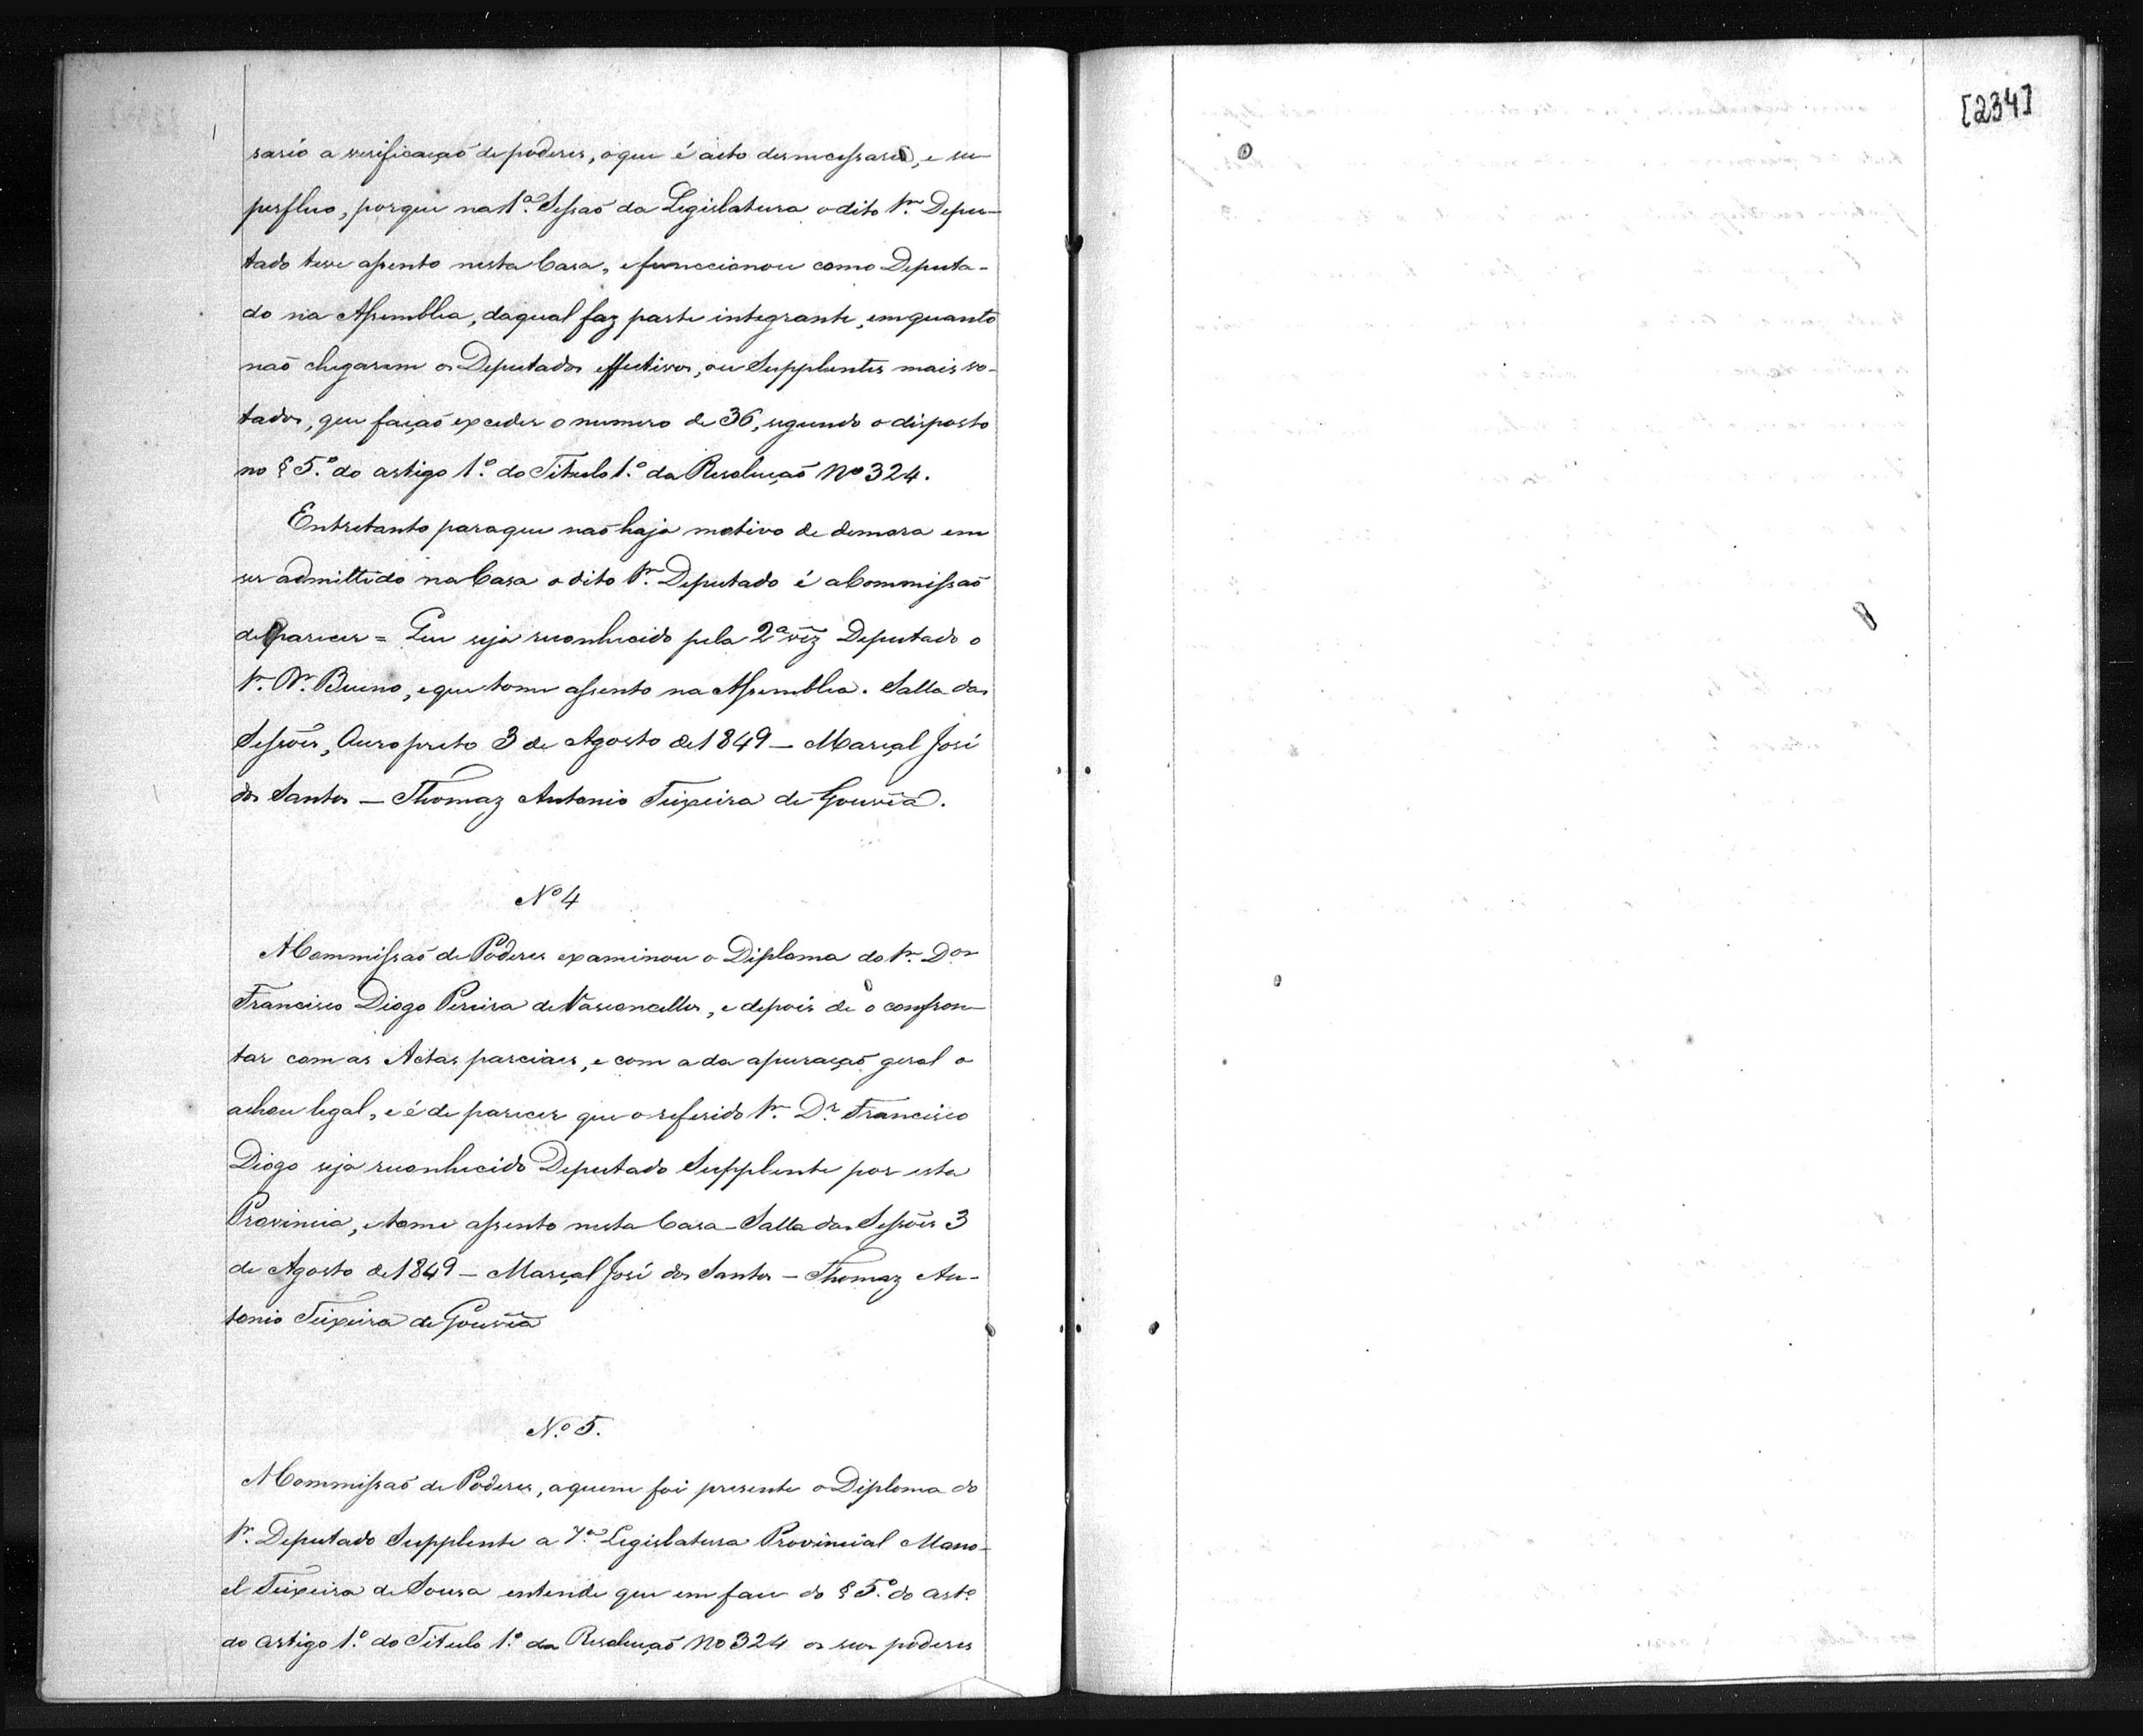 sario a verificaçaõ de poderes, o que é acto desnecessario, e su-
perfluo, porque na 1ª. Sessaõ da Legislatura o dito Sr. Depu-
tado teve assento nesta Casa, e funccionou como Deputa-
do na Assemblea, da qual faz parte integrante, emquanto
naõ chegarem os Deputados effectivos, ou Supplentes mais vo-
tados, que façaõ exceder o numero de 36, segundo o disposto
no § 5.º do artigo 1.º do Titulo 1.º da Resoluçaõ Nº 324.
Entretanto para que naõ haja motivo de demora em
ser admittido na Casa o dito Sr. Deputado é a Commissaõ
de parecer = Que seja reconhecido pela 2ª vez Deputado o
Sr. Dr. Bueno, e que tome assento na Assemblea. Salla das
Sessões, Ouro preto 3 de Agosto de 1849 — Marçal José
dos Santos — Thomaz Antonio Teixeira de Gouvêa.
Nº 4
A Commissaõ de Poderes examinou o Diploma do Sr. Dor
Francisco Diogo Pereira de Vasconcellos, e depois de o confron-
tar com as Actas parciaes, e com a da apuraçaõ geral o
achou legal, e é de parecer que o referido Sr. Dr. Francisco
Diogo seja reconhecido Deputado Supplente por esta
Provincia, e tome assento nesta Casa — Salla das Sessões 3
de Agosto de 1849 — Marçal José dos Santos — Thomaz An-
tonio Teixeira de Gouvêa
N.º 5.
A Commissaõ de Poderes, a quem foi presente o Diploma do
Sr. Deputado Supplente a 7.ª Legislatura Provincial Mano-
el Teixeira de Sousa entende que em face do § 5.º do artº
do artigo 1.º do Titulo 1.º da Resoluçaõ Nº 324 os seus poderes
[234]